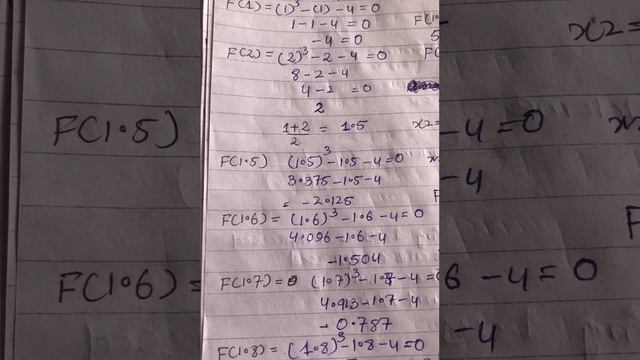 F(1) = (1)³ - (1) - 4 = 0
1 - 1 - 4 = 0
- 4 = 0
F(2) = (2)³ - 2 - 4 = 0
8 - 2 - 4
4 - 2 = 0
2
1+2/2 = 1.5
x2 =
F(1.5) (1.5)³ - 1.5 - 4 = 0
3.375 - 1.5 - 4
= - 2.125
F(1.6) = (1.6)³ - 1.6 - 4 = 0
4.096 - 1.6 - 4
- 1.504
F(1.7) = (1.7)³ - 1.7 - 4 =
4.913 - 1.7 - 4
- 0.787
F(1.8) = (1.8)³ - 1.8 - 4 = 0
F(1.5)
F(1.6) =
x2 =
- 4 = 0
- 4
6 - 4 = 0
- 4